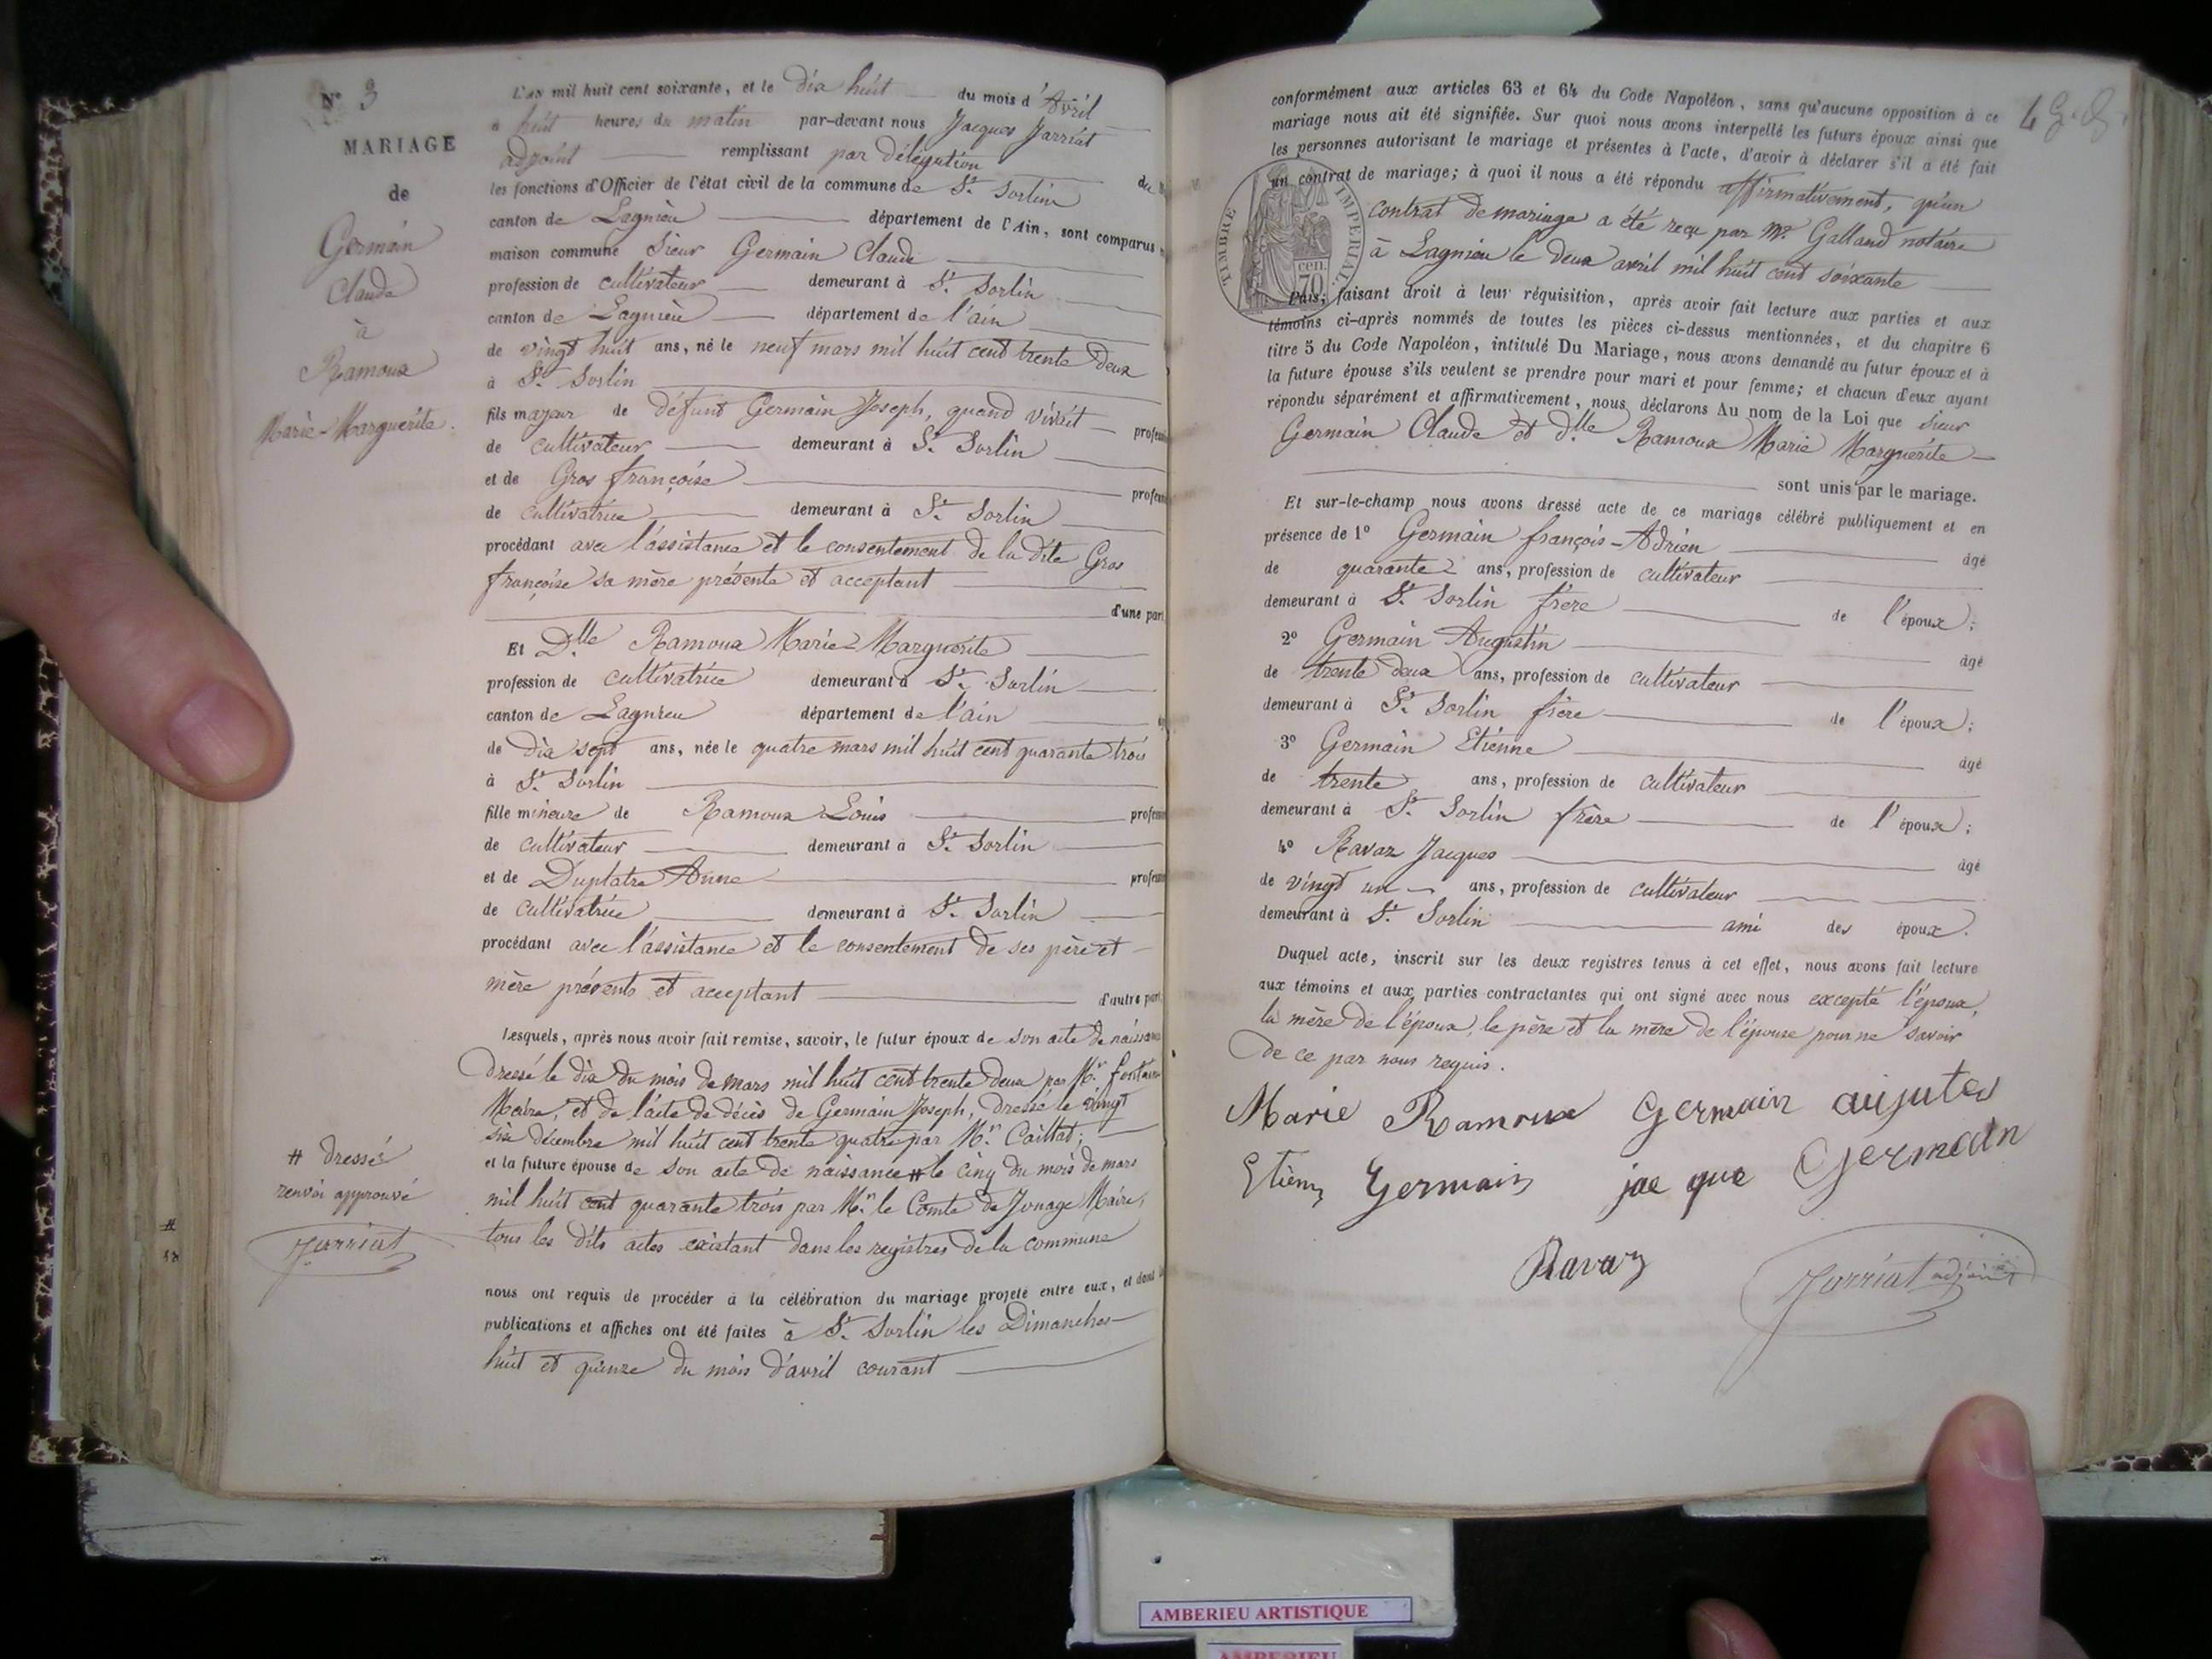 N° 3
MARIAGE
de
Germain
Claude
à
Ramoux
Marie-Marguerite.
L'an mil huit cent soixante, et le dix huit du mois d'Avril
à huit heures du matin par-devant nous Jacques Jarriat
adjoint remplissant par délégation
les fonctions d'Officier de l'état civil de la commune de St. Sorlin
canton de Lagnieu département de l'Ain, sont comparus
maison commune Sieur Germain Claude
profession de cultivateur demeurant à St. Sorlin
canton de Lagnieu département de l'ain
de vingt huit ans, né le neuf mars mil huit cent trente deux
à St. Sorlin
fils majeur de défunt Germain Joseph, quand vivait
de cultivateur demeurant à St. Sorlin
et de Gros françoise
de cultivatrice demeurant à St. Sorlin
procédant avec l'assistance et le consentement de la dite Gros
françoise sa mère présente et acceptant
d'une part
Et Dlle Ramoux Marie-Marguerite
profession de cultivatrice demeurant à St. Sorlin
canton de Lagnieu département de l'ain
de dix sept ans, née le quatre mars mil huit cent quarante trois
à St. Sorlin
fille mineure de Ramoux Louis
de cultivateur demeurant à St. Sorlin
et de Duplatre Anne
de cultivatrice demeurant à St. Sorlin
procédant avec l'assistance et le consentement de ses père et
mère présents et acceptant d'autre part
Lesquels, après nous avoir fait remise, savoir, le futur époux de son acte de naissance
dressé le dix du mois de mars mil huit cent trente deux par Mr.
Maire, et de l'acte de décès de Germain Joseph, dressé le vingt
six décembre mil huit cent trente quatre par Mr. Caillat;
et la future épouse de son acte de naissance # le cinq du mois de mars
mil huit cent quarante trois par Mr. le Comte de Jonage Maire,
tous les dits actes existant dans les registres de la commune
# dressé
renvoi approuvé
Jarriat
nous ont requis de procéder à la célébration du mariage projeté entre eux, et dont
publications et affiches ont été faites à St. Sorlin les Dimanches
huit et quinze du mois d'avril courant
conformément aux articles 63 et 64 du Code Napoléon, sans qu'aucune opposition à ce
mariage nous ait été signifiée. Sur quoi nous avons interpellé les futurs époux ainsi que
les personnes autorisant le mariage et présentes à l'acte, d'avoir à déclarer s'il a été fait
un contrat de mariage; à quoi il nous a été répondu affirmativement, qu'un
contrat de mariage a été reçu par Me. Galland notaire
à Lagnieu le deux avril mil huit cent soixante
TIMBRE IMPERIAL
70 cen.
Puis, faisant droit à leur réquisition, après avoir fait lecture aux parties et aux
témoins ci-après nommés de toutes les pièces ci-dessus mentionnées, et du chapitre 6
titre 5 du Code Napoléon, intitulé Du Mariage, nous avons demandé au futur époux et à
la future épouse s'ils veulent se prendre pour mari et pour femme; et chacun d'eux ayant
répondu séparément et affirmativement, nous déclarons Au nom de la Loi que sieur
Germain Claude et dlle Ramoux Marie Marguerite
sont unis par le mariage.
Et sur-le-champ nous avons dressé acte de ce mariage célébré publiquement et en
présence de 1° Germain françois-Adrien âgé
de quarante ans, profession de cultivateur
demeurant à St. Sorlin frère de l'époux;
2° Germain Augustin âgé
de trente deux ans, profession de cultivateur
demeurant à St. Sorlin frère de l'époux;
3° Germain Etienne âgé
de trente ans, profession de cultivateur
demeurant à St. Sorlin frère de l'époux;
4° Ravaz Jacques âgé
de vingt un ans, profession de cultivateur
demeurant à St. Sorlin ami des époux.
Duquel acte, inscrit sur les deux registres tenus à cet effet, nous avons fait lecture
aux témoins et aux parties contractantes qui ont signé avec nous excepté l'époux,
la mère de l'époux, le père et la mère de l'épouse pour ne savoir
de ce par nous requis.
Marie Ramoux Germain
Etien Germain jac que Germain
Ravaz
Jarriat adjoint
AMBERIEU ARTISTIQUE
AMBERIEU